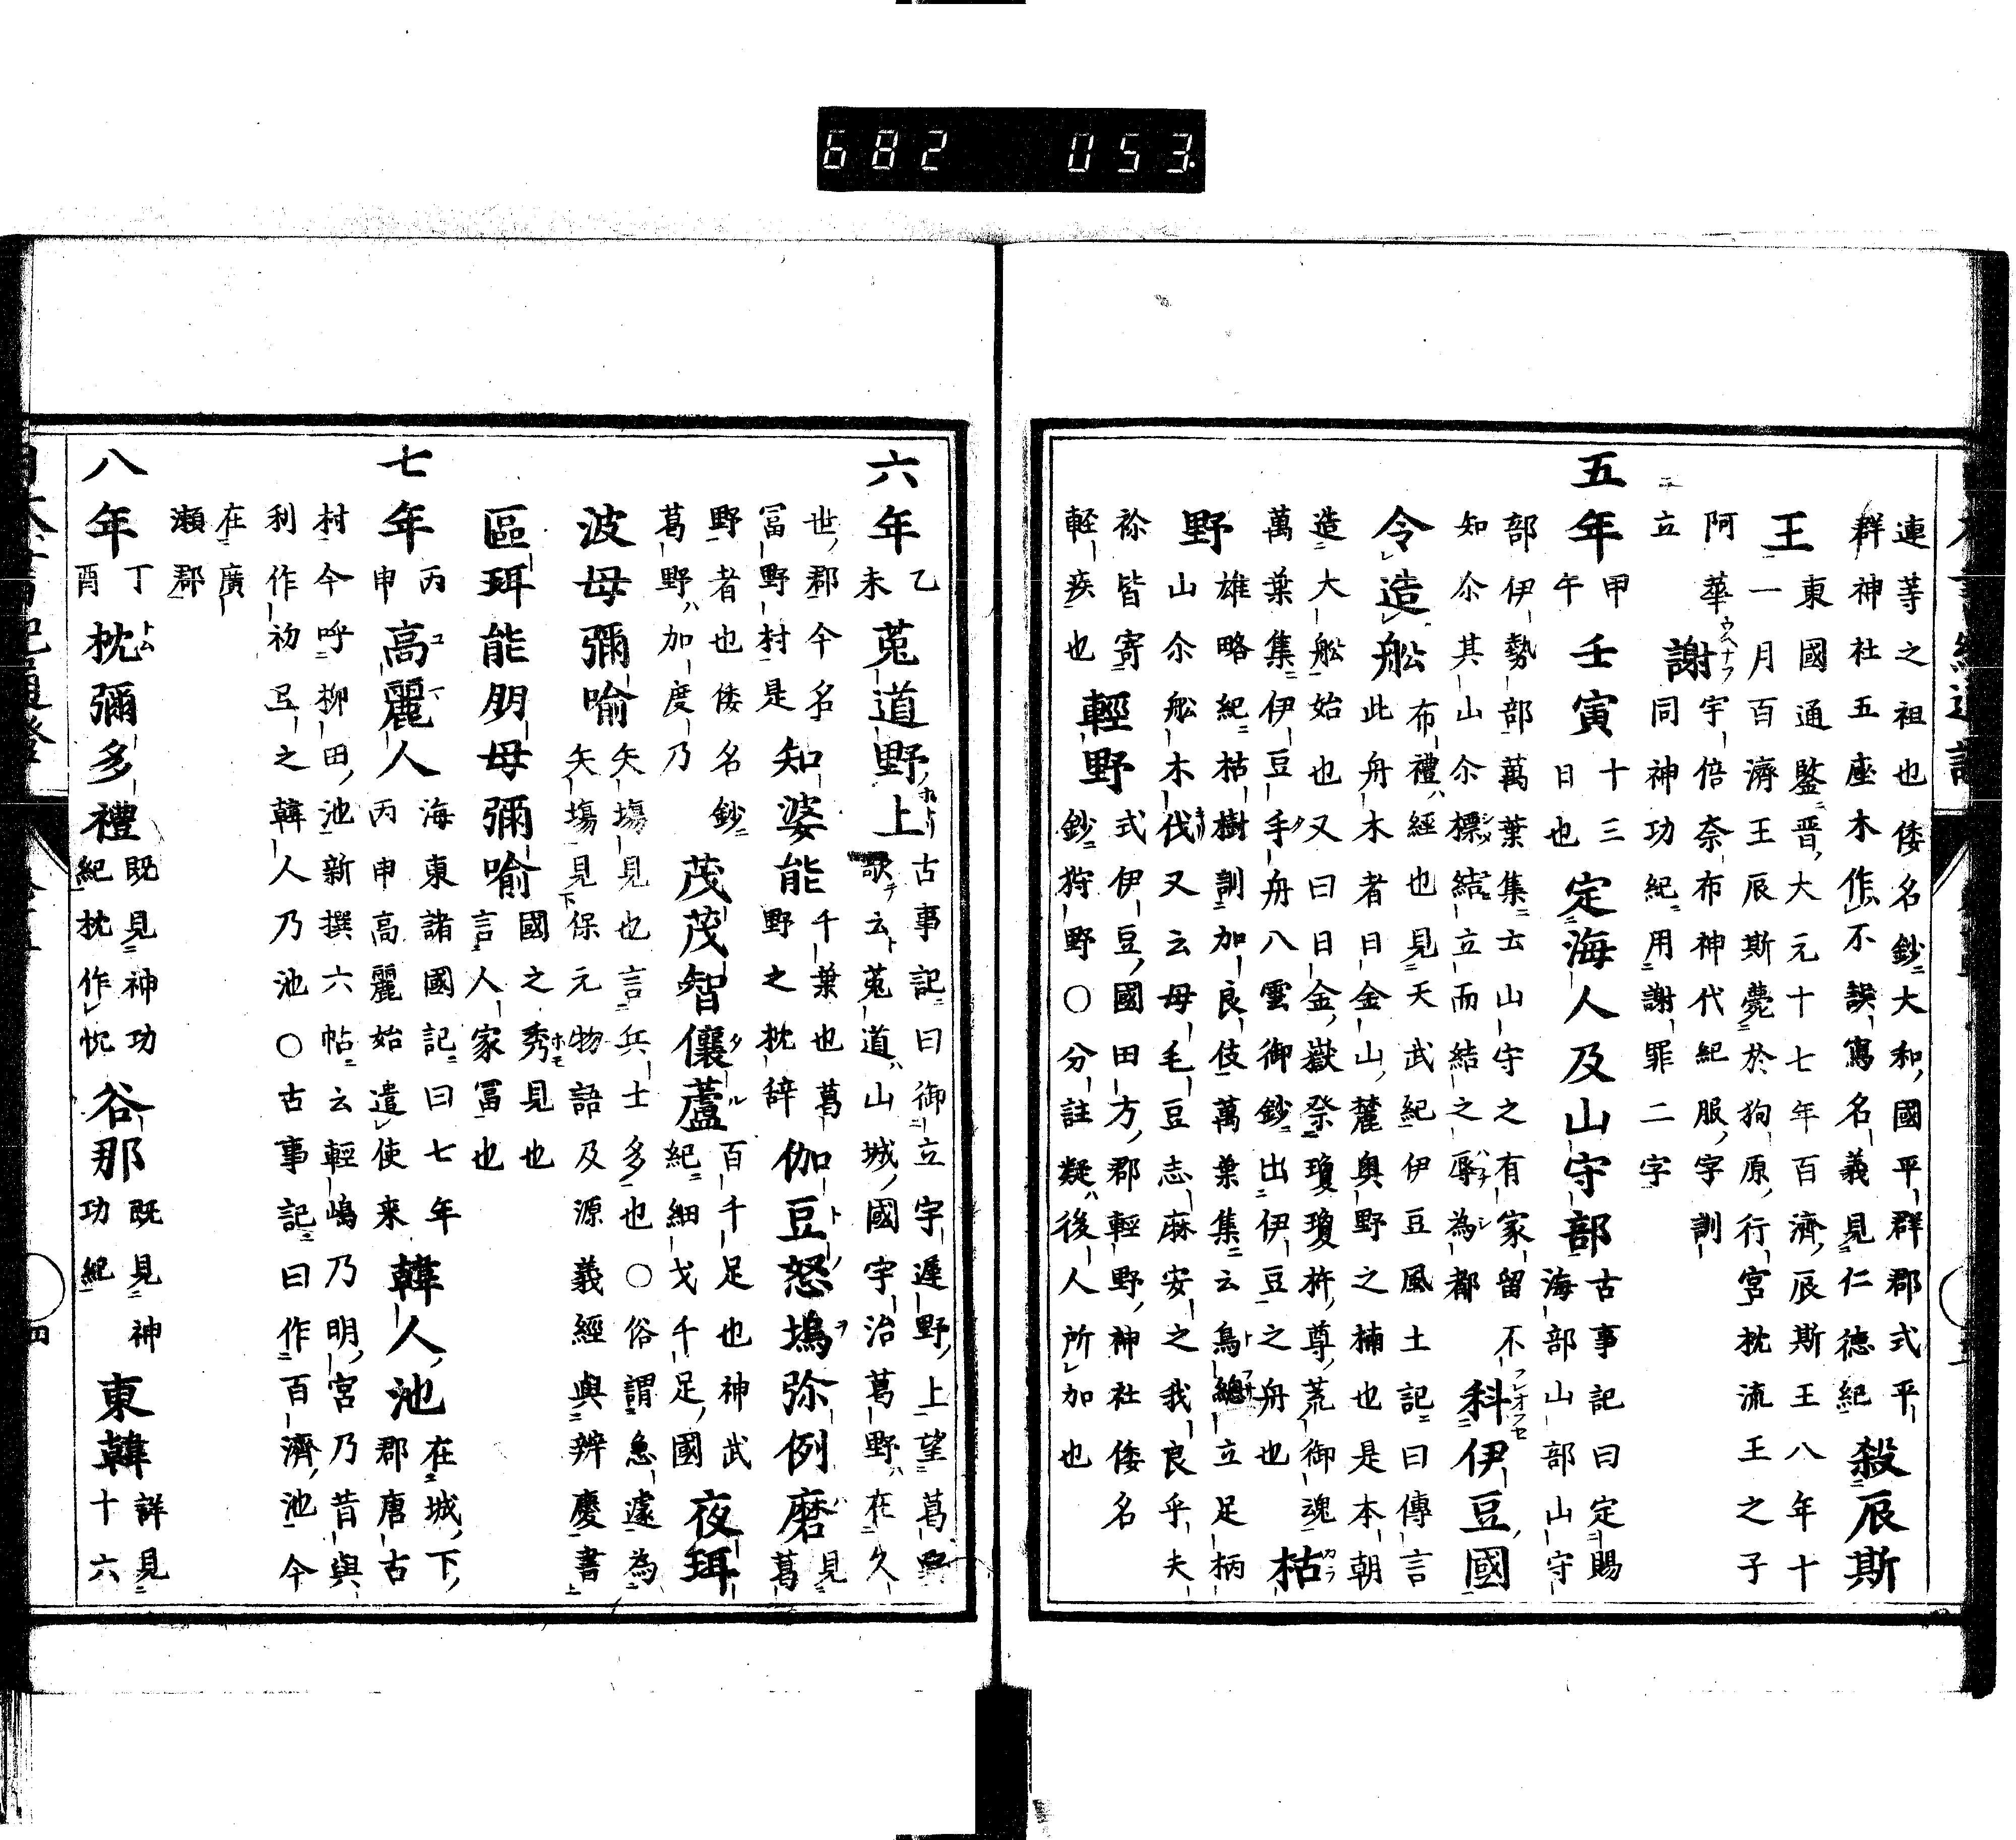 682 053
連等之祖也倭名鈔大和國平群郡式平
群神社五座木作不誤寫名義見仁德紀 殺辰斯
王 東國通鑒晋大元十七年百濟辰斯王八年十
一月百濟王辰斯薨於狗原行宮枕流王之子
阿華
立 謝 宇倍奈布神代紀服字訓
同神功紀用謝罪二字
五年 甲午 壬寅 十三日也 定海人及山守部 古事記曰定賜
海部山部山守
部伊勢部萬葉集云山守之有家留不
知尒其山尒標結立而結之辱為都 科伊豆國
令造船 布禮経也見天武紀伊豆風土記曰傳言
此舟木者日金山麓奥野之楠也是本朝
造大船始也又曰日金嶽祭瓊瓊杵尊荒御魂 枯
萬葉集伊豆手舟八雲御鈔出伊豆之舟也
野 雄略紀枯樹訓加良伎萬葉集云鳥總立足柄
山尒船木伐又云母毛豆志麻安之我良乎夫
祢皆寄
軽疾也 輕野 式伊豆國田方郡輕野神社倭名
鈔狩野〇分註疑後人所加也
六年 乙未 菟道野上 古事記曰御立宇遲野上望葛野
歌云菟道山城國宇治葛野在久
世郡今名
冨野村是 知婆能 千葉也葛
野之枕辞 伽豆怒塢弥例磨 見葛
野者也倭名鈔
葛野加度乃 茂茂智儾蘆 百千足也神武
紀細戈千足國 夜珥
波母彌喻 矢塲見也言兵士多也〇俗謂急遽為
矢塲見保元物語及源義經與辨慶書
區珥能朋母彌喻 國之秀見也
言人家冨也
七年 丙申 高麗人 海東諸國記曰七年
丙申高麗始遣使来 韓人池 在城下
郡唐古
村今呼柳田池新撰六帖云輕嶋乃明宮乃昔與
利作初之韓人乃池〇古事記曰作百濟池今
在廣
瀬郡
八年 丁酉 枕彌多禮 既見神功
紀枕作忱 谷那 既見神
功紀 東韓 詳見
十六